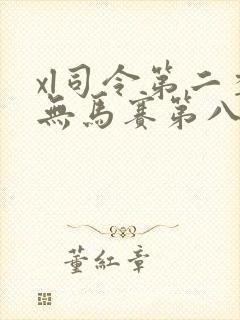 xl司令第二季
無馬賽第八
董紅章